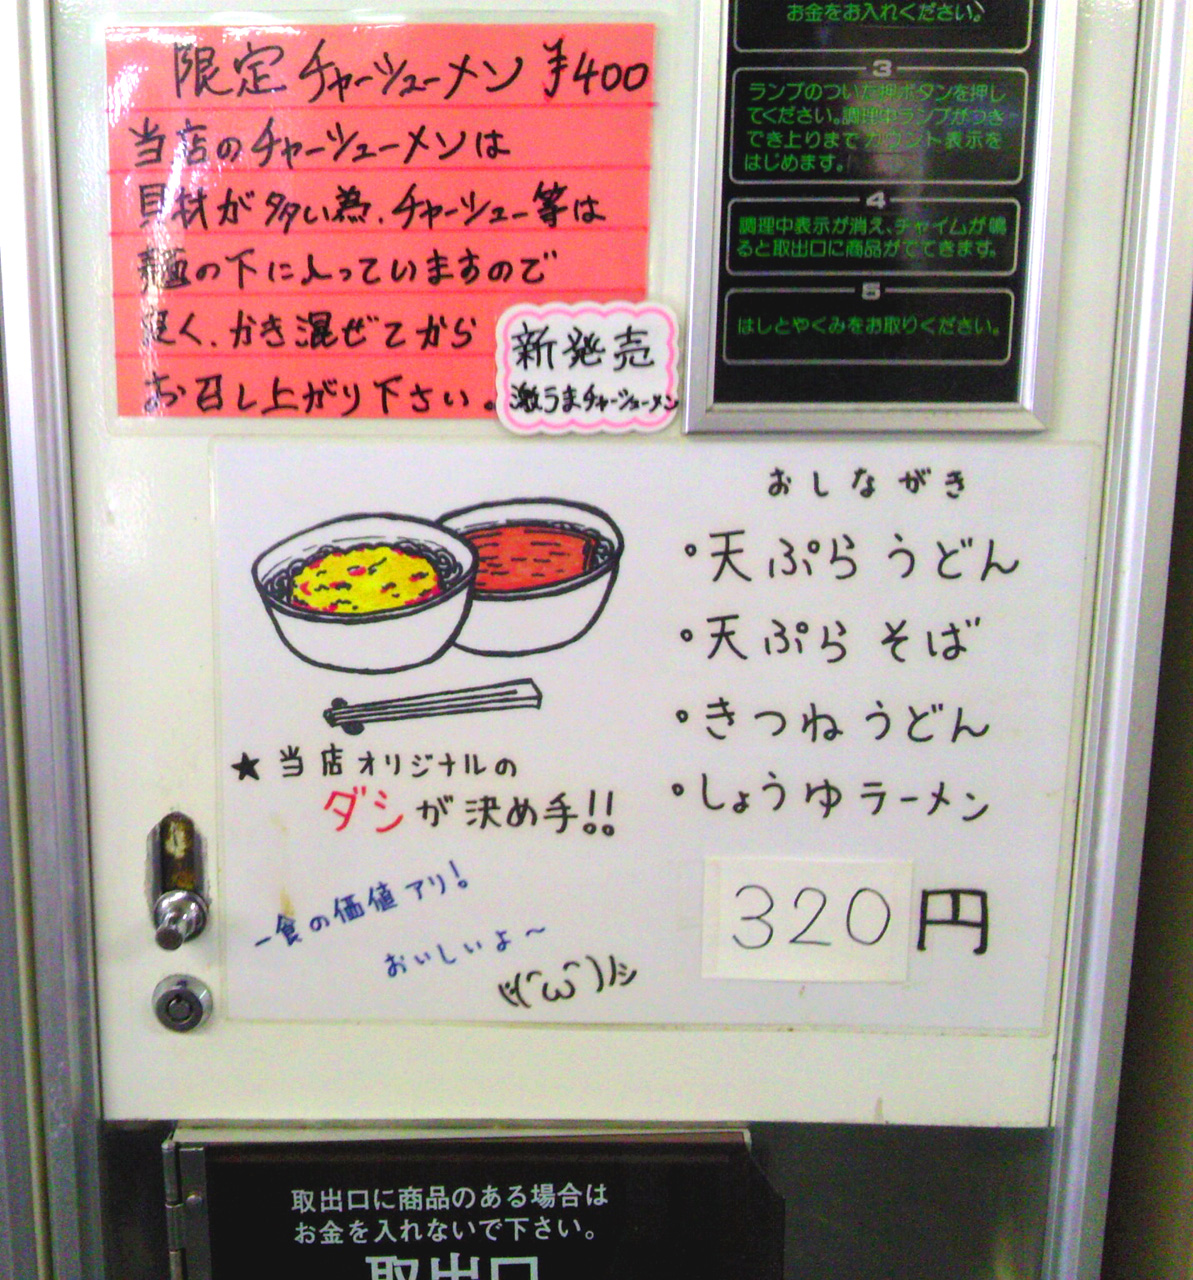 限定チャーシューメン ¥400
当店のチャーシューメンは
具材が多い為、チャーシュー等は
麺の下に入っていますので
良く、かき混ぜてから
お召し上がり下さい。
新発売
激うまチャーシューメン
お金をお入れください。
3
ランプのついた押ボタンを押し
てください。調理中ランプがつき
でき上りまでカウント表示を
はじめます。
4
調理中表示が消え、チャイムが鳴
ると取出口に商品がでてきます。
5
はしとやくみをお取りください。
おしながき
・天ぷらうどん
・天ぷらそば
・きつねうどん
・しょうゆラーメン
320円
★当店オリジナルの
ダシが決め手!!
一食の価値アリ!
おいしいよ〜
ヾ(^ω^)ノシ
取出口に商品のある場合は
お金を入れないで下さい。
取出口